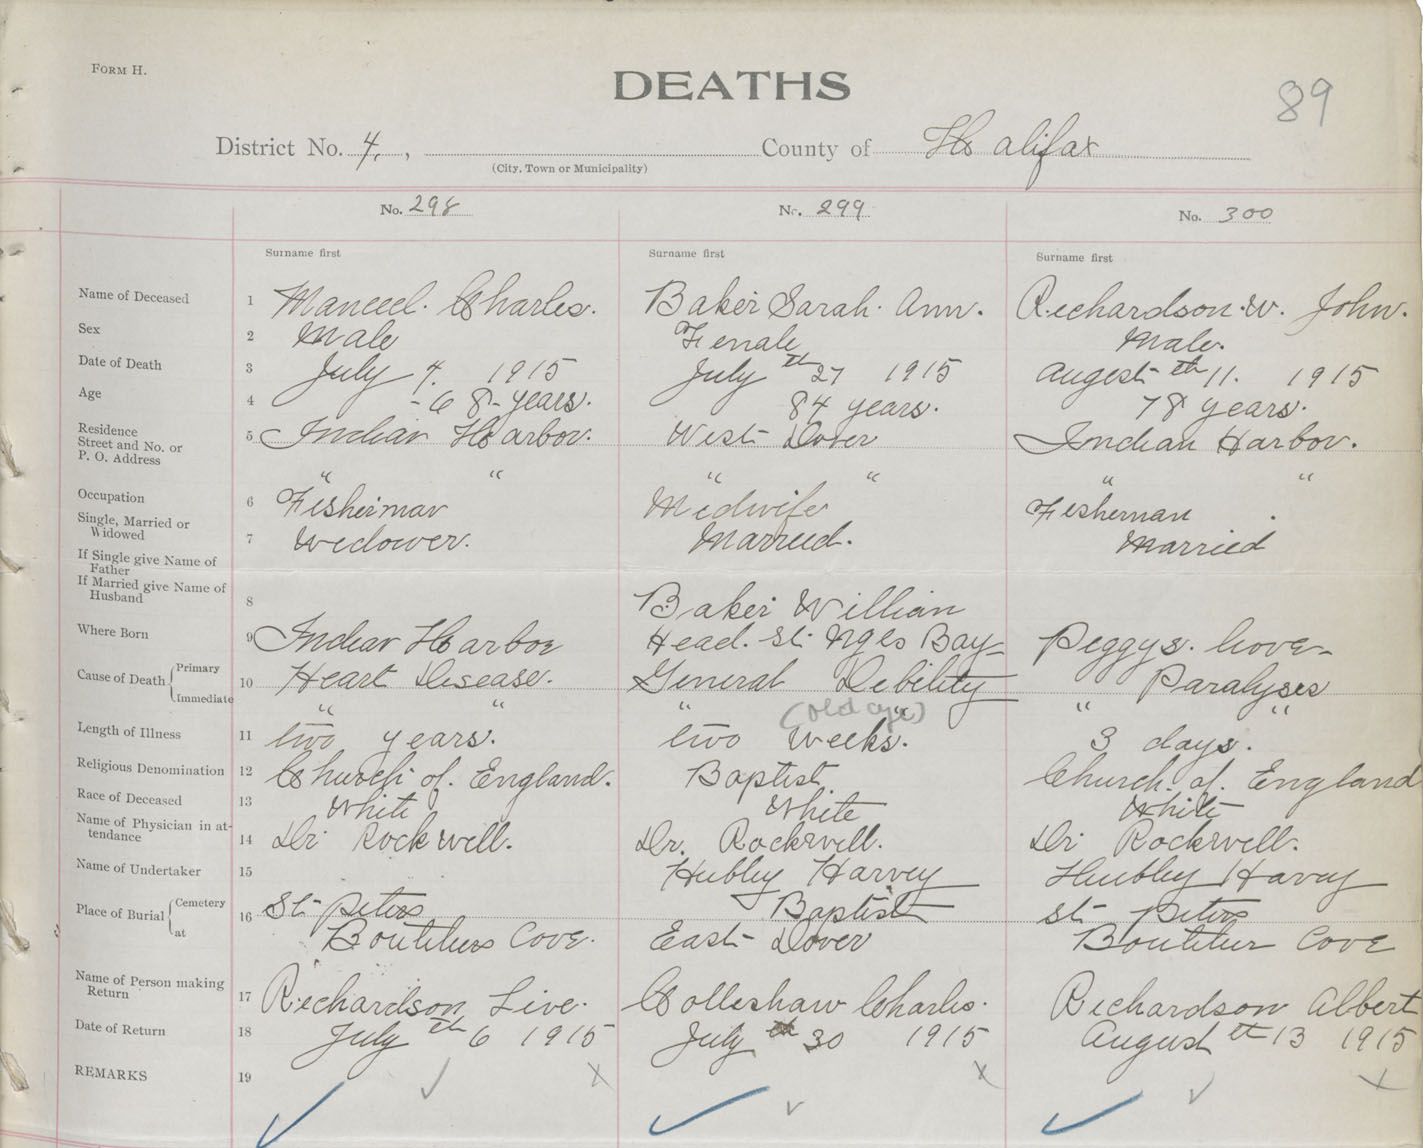 FORM H.
DEATHS
89
District No. 4, , County of Halifax
(City, Town or Municipality)
No. 298 No. 299 No. 300
Surname first Surname first Surname first
Name of Deceased 1 Charles. Baker Sarah. Ann. Richardson. W. John.
Sex 2 Male Female Male.
Date of Death 3 July 4. 1915 July th 27 1915 August th 11. 1915
Age 4 68 - years. 84 years. 78 years.
Residence
Street and No. or
P. O. Address
5 Indian Harbor. West Dover Indian Harbor.
" " " " " "
Occupation 6 Fisherman Midwife Fisherman
Single, Married or
Widowed
7 Widower. Married. Married
If Single give Name of
Father
If Married give Name of
Husband
8 Baker William
Where Born 9 Indian Harbor Head. St. Bay Peggys. Cove
Cause of Death { Primary
Immediate
10 Heart Disease. General Debility Paralyses
" " " (old age) " " "
Length of Illness 11 two years. two weeks. 3 days.
Religious Denomination 12 Church of. England. Baptist Church. of. England
Race of Deceased 13 White White White
Name of Physician in at-
tendance
14 Dr Rockwell. Dr. Rockwell. Dr Rockwell.
Name of Undertaker 15 Hubley Harvey Hubley Harvey
Place of Burial { Cemetery
at
16 St. Peters Baptist St. Peters
Cove. East Dover Cove
Name of Person making
Return
17 Richardson Charles. Richardson Albert
Date of Return 18 July th 6 1915 July th 30 1915 August th 13 1915
REMARKS 19